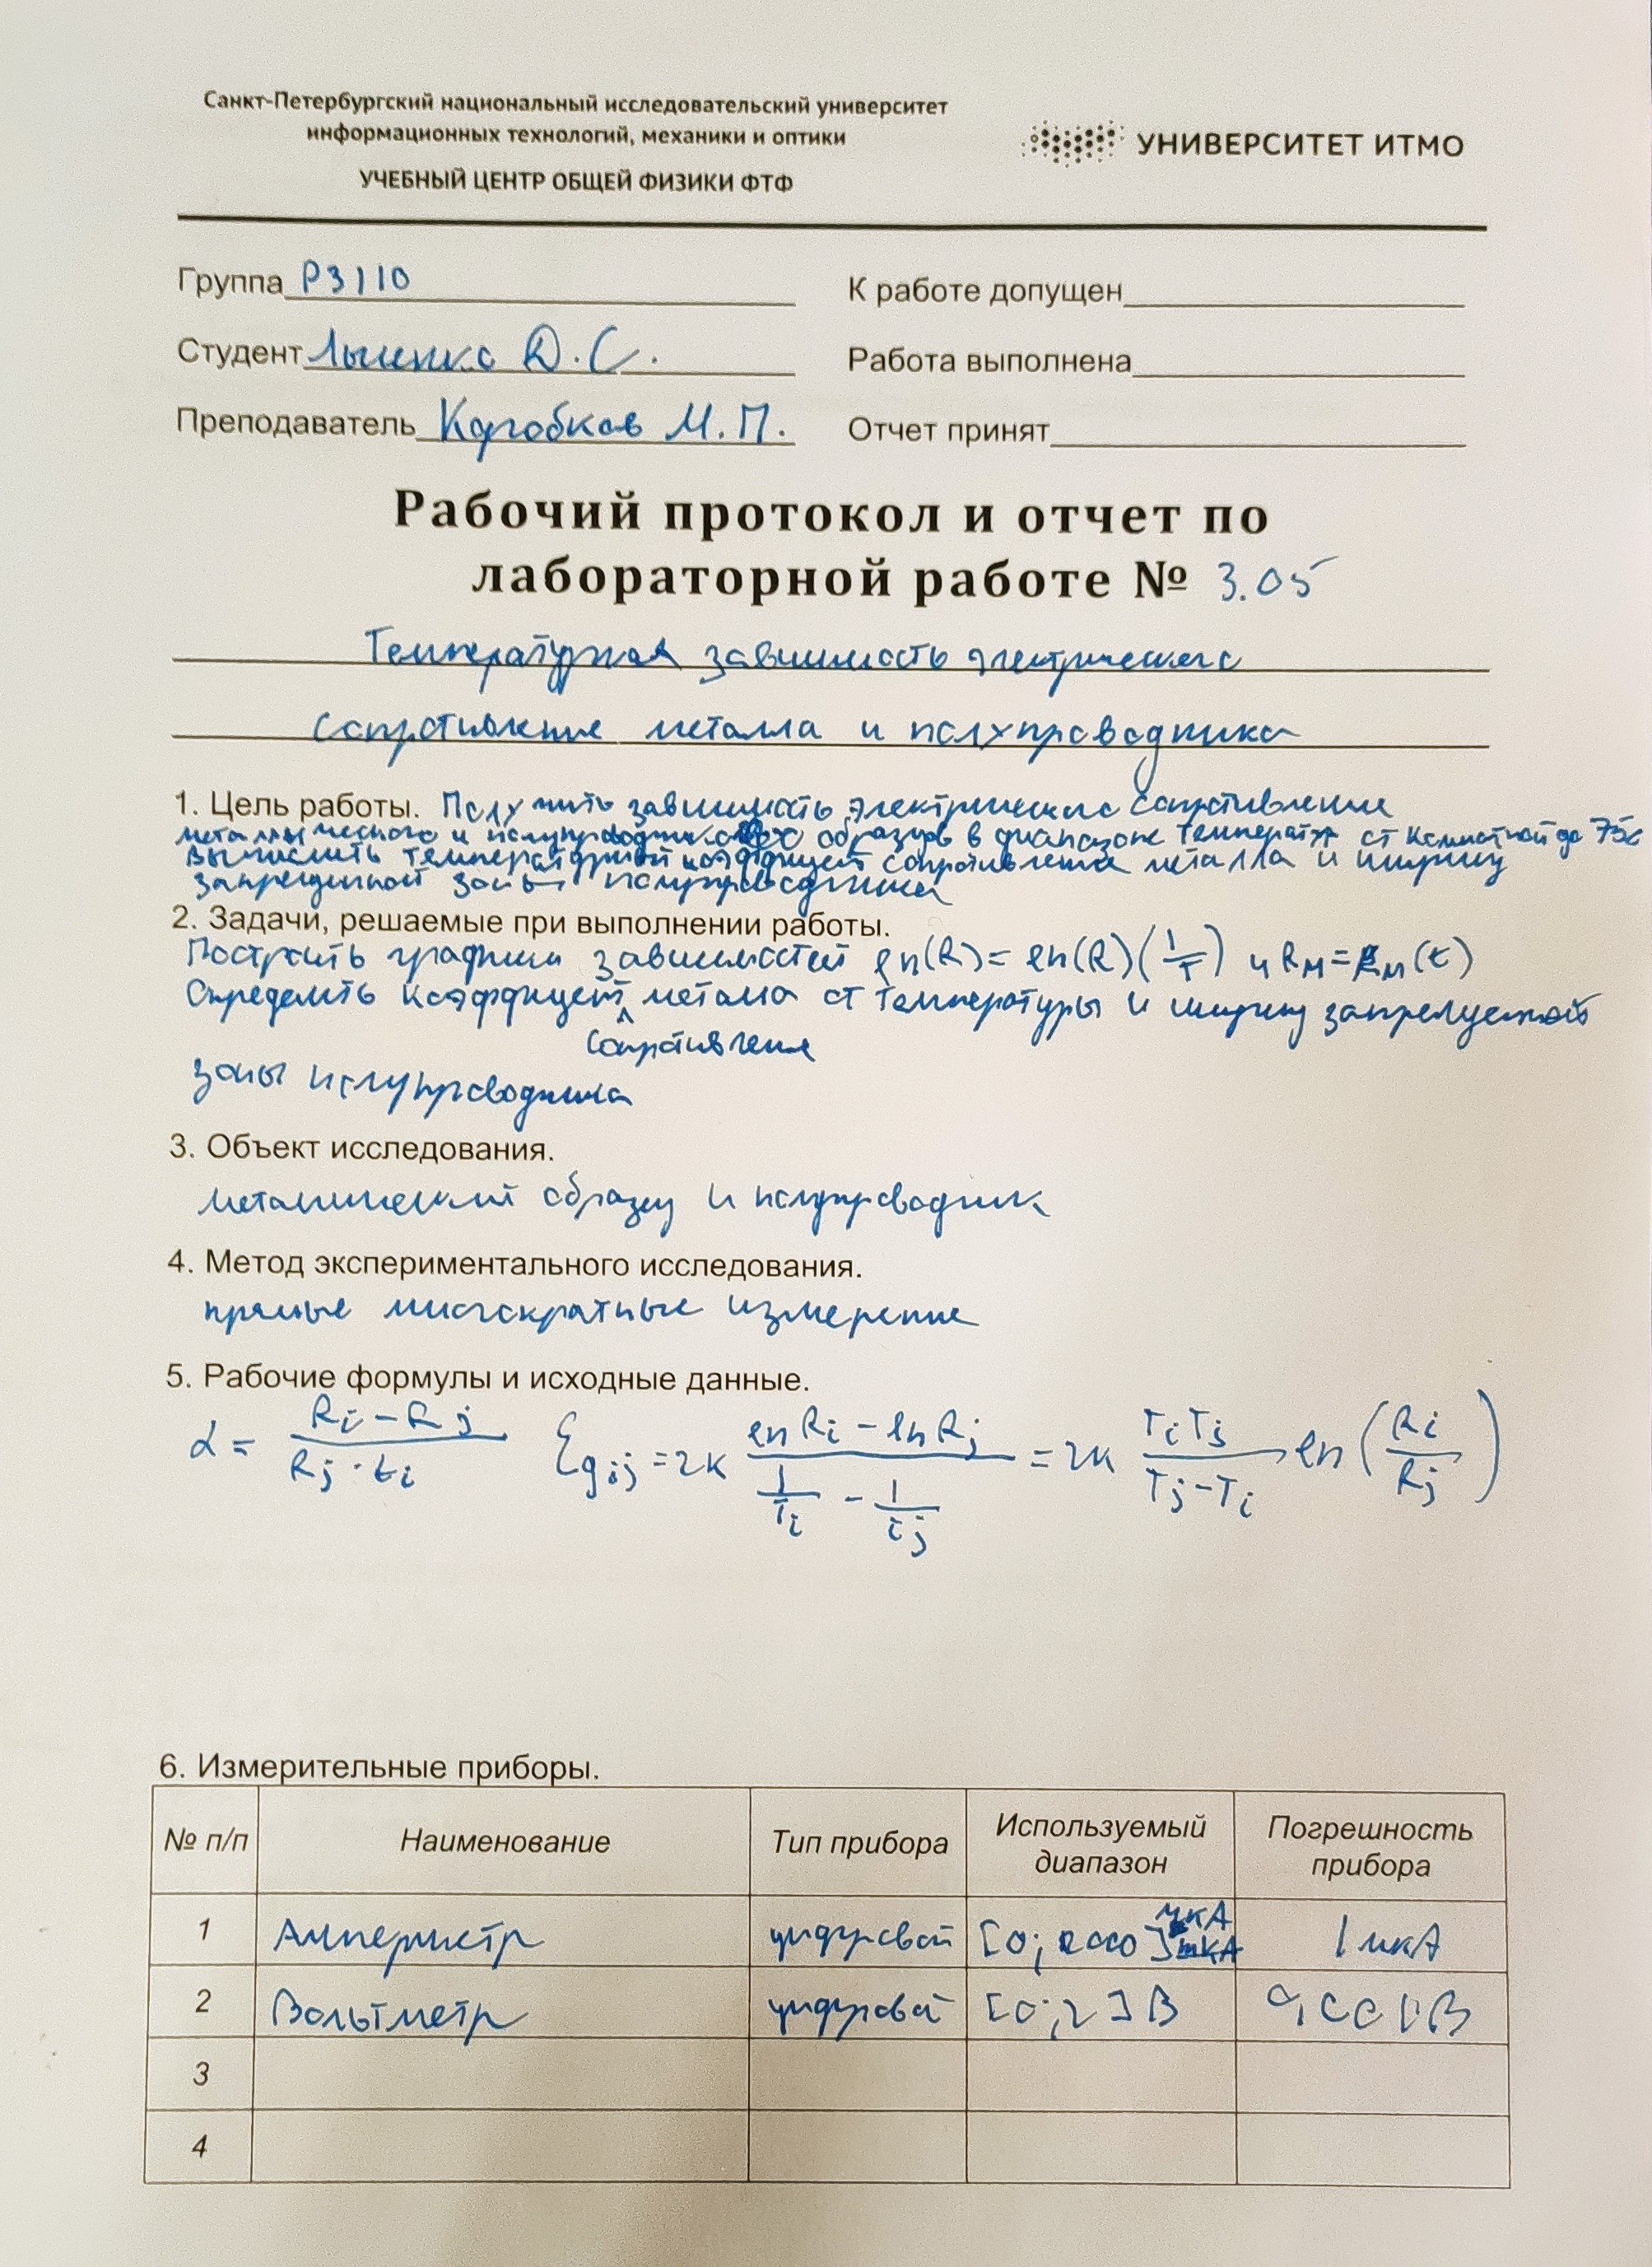 Санкт-Петербургский национальный исследовательский университет
информационных технологий, механики и оптики
УЧЕБНЫЙ ЦЕНТР ОБЩЕЙ ФИЗИКИ ФТФ
УНИВЕРСИТЕТ ИТМО
Группа P3110
К работе допущен
Студент Д.С.
Работа выполнена
Преподаватель Коробков М.П.
Отчет принят
Рабочий протокол и отчет по
лабораторной работе № 3.05
Температурная зависимость электрического
сопротивления металла и полупроводника
1. Цель работы. Получить зависимость электрического сопротивления
металлического и полупроводникового образцов в диапазоне температур от комнатной до 75с
Вычислить температурный коэффициент сопротивления металла и ширину
запрещенной зоны полупроводника
2. Задачи, решаемые при выполнении работы.
Построить графики зависимостей ln(R)=ln(R)(1/T) и Rм=Rм(t)
Определить коэффициент металла от температуры и ширину запрещенной
сопротивления
зоны полупроводника
3. Объект исследования.
металлический образец и полупроводник
4. Метод экспериментального исследования.
прямые многократные измерение
5. Рабочие формулы и исходные данные.
α = (Ri - Rj)/(Rj · ti) Egij = 2k (ln Ri - ln Rj)/(1/Ti - 1/Tj) = 2k (Ti Tj)/(Tj - Ti) ln(Ri/Rj)
6. Измерительные приборы.
№ п/п Наименование Тип прибора Используемый диапазон Погрешность прибора
1 Амперметр цифровой [0; 2000] мкА 1 мкА
2 Вольтметр цифровой [0; 2] В 0,001 В
3
4